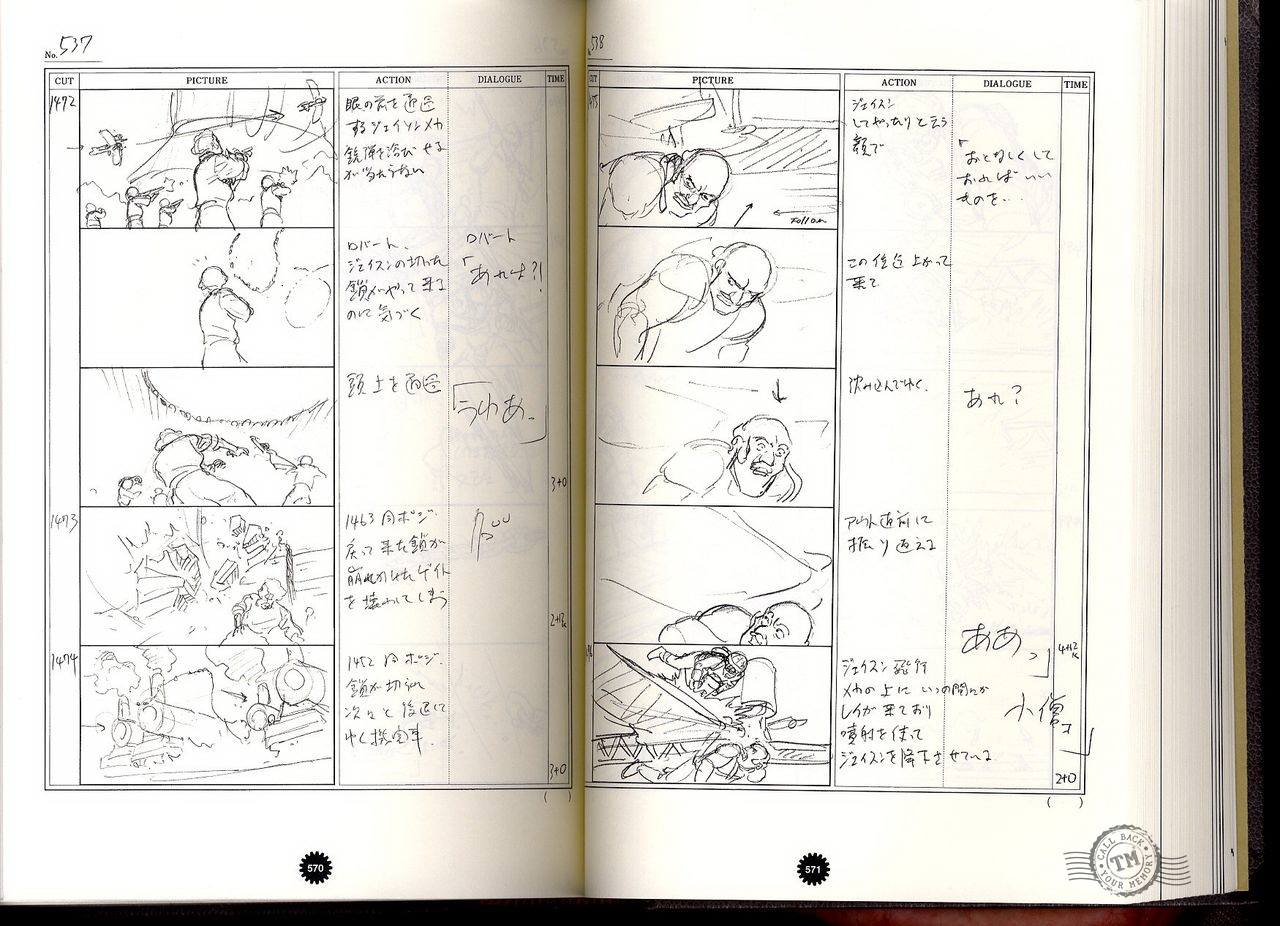 No. 537
CUT PICTURE ACTION DIALOGUE TIME
1472
眼の前を通過
するジェイソンメカ
銃弾を浴びせる
が当たらない
ロバート、
ジェイスンの切った
鎖がやって来る
のに気づく
ロバート
「あれは?!
頭上を通過
「うわあ」
3+0
1473
1463 同ポジ.
戻って来た鎖が
崩れかけたゲイト
を壊してしまう
2+12K
1474
1452 同ポジ.
鎖が切れ
次々と後退して
ゆく機関車.
3+0
( )
570
538
CUT PICTURE ACTION DIALOGUE TIME
ジェイスン
してやったりと云う
顔で
「おとなしくして
おればいい
ものを…
Follow
この位迄上がって
来て
沈み込んでゆく.
あれ?
アウト直前に
振り返える
ああっ」
4+12K
ジェイスン飛行
メカの上にいつの間にか
レイが来ており
噴射を使って
ジェイスンを降下させている
小僧
2+0
( )
571
CALL BACK
TM
YOUR MEMORY